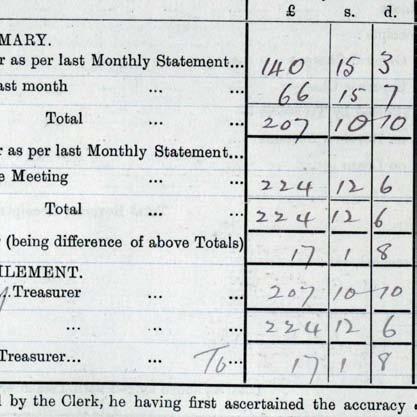 £ s. d.
MARY.
r as per last Monthly Statement... 140 15 3
ast month ... ... 66 15 7
Total ... ... 207 10 10
r as per last Monthly Statement...
e Meeting ... ... 224 12 6
Total ... ... 224 12 6
(being difference of above Totals) 17 1 8
LEMENT.
...Treasurer ... ... 207 10 10
... ... 224 12 6
Treasurer... ... To ... 17 1 8
l by the Clerk, he having first ascertained the accuracy